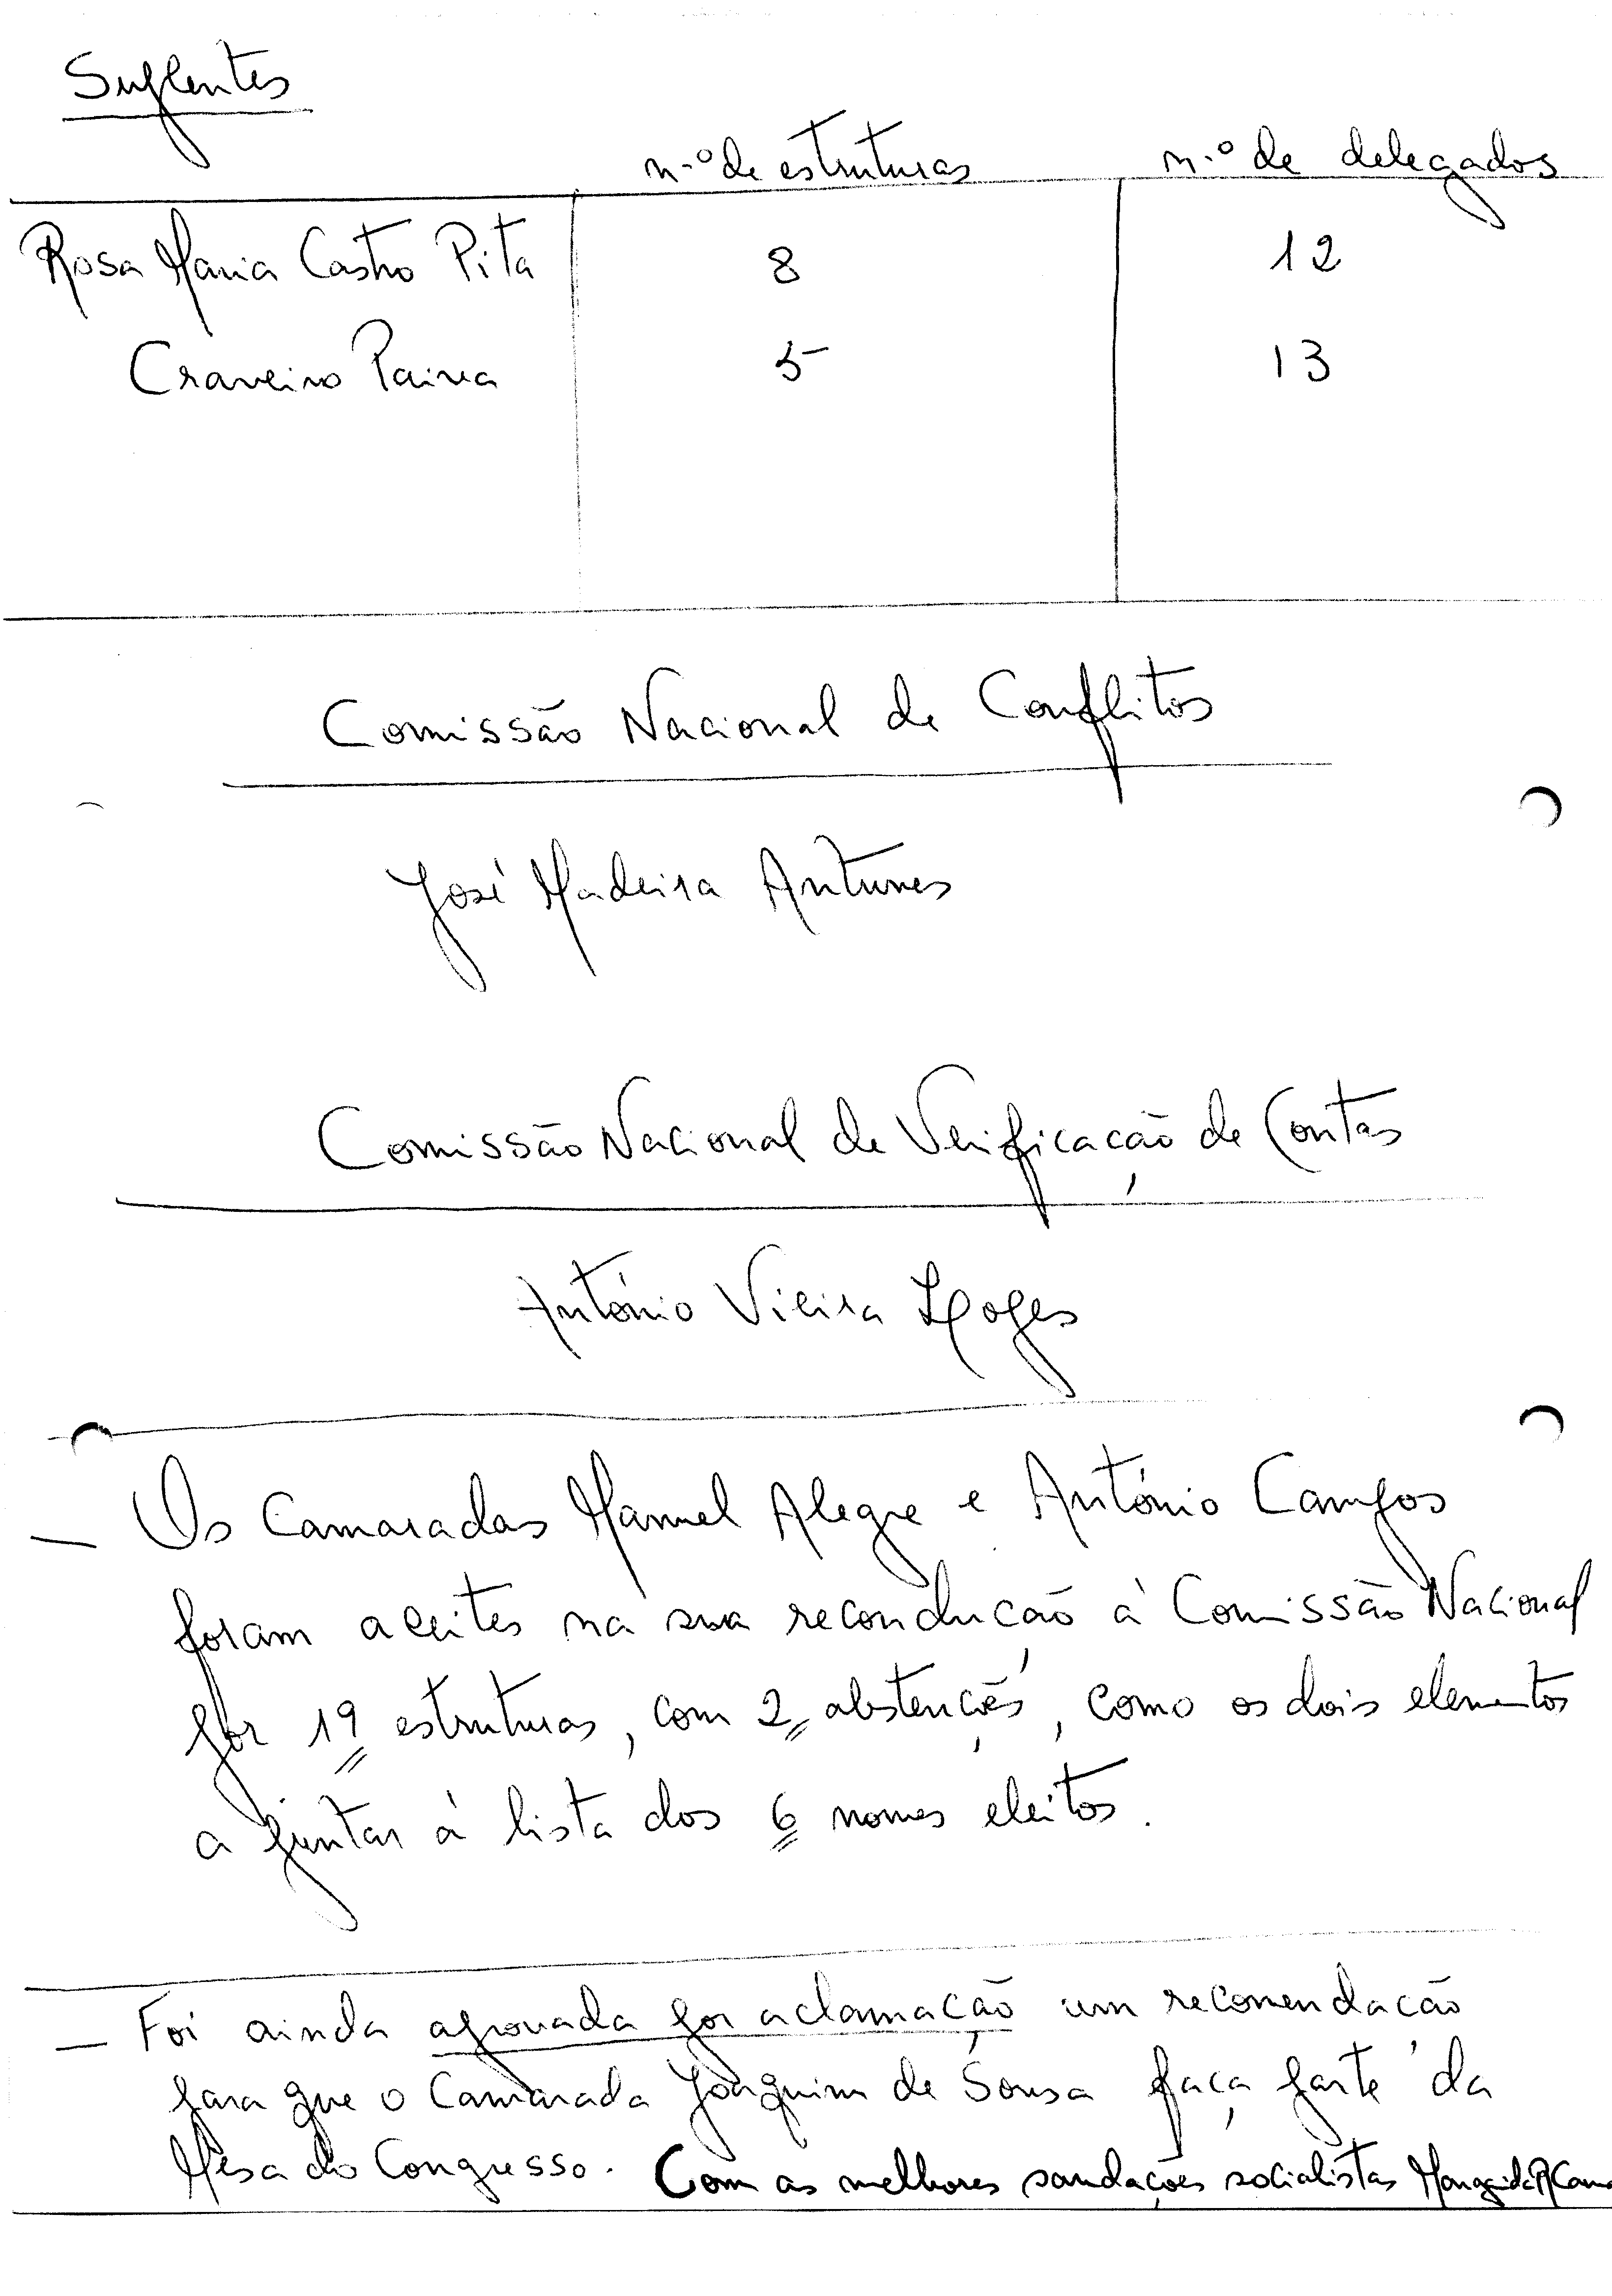 Suplentes
n.º de estruturas n.º de delegados
Rosa Maria Castro Pita 8 12
Craveiro Paiva 5 13
Comissão Nacional de Conflitos
José Madeira Antunes
Comissão Nacional de Verificação de Contas
António Vieira Lopes
— Os Camaradas Manuel Alegre e António Campos
foram aceites na sua recondução à Comissão Nacional
por 19 estruturas, com 2 abstenções, como os dois elementos
a juntar à lista dos 6 nomes eleitos.
— Foi ainda aprovada por aclamação um recomendação
para que o Camarada Joaquim de Sousa faça parte da
Mesa do Congresso. Com as melhores saudações socialistas